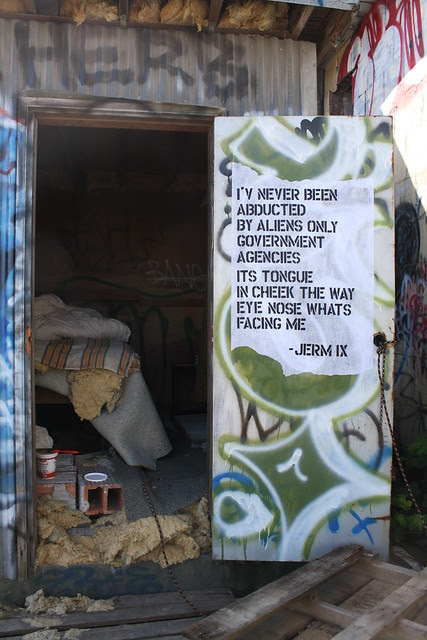 I'V NEVER BEEN
ABDUCTED
BY ALIENS ONLY
GOVERNMENT
AGENCIES
ITS TONGUE
IN CHEEK THE WAY
EYE NOSE WHATS
FACING ME
-JERM IX